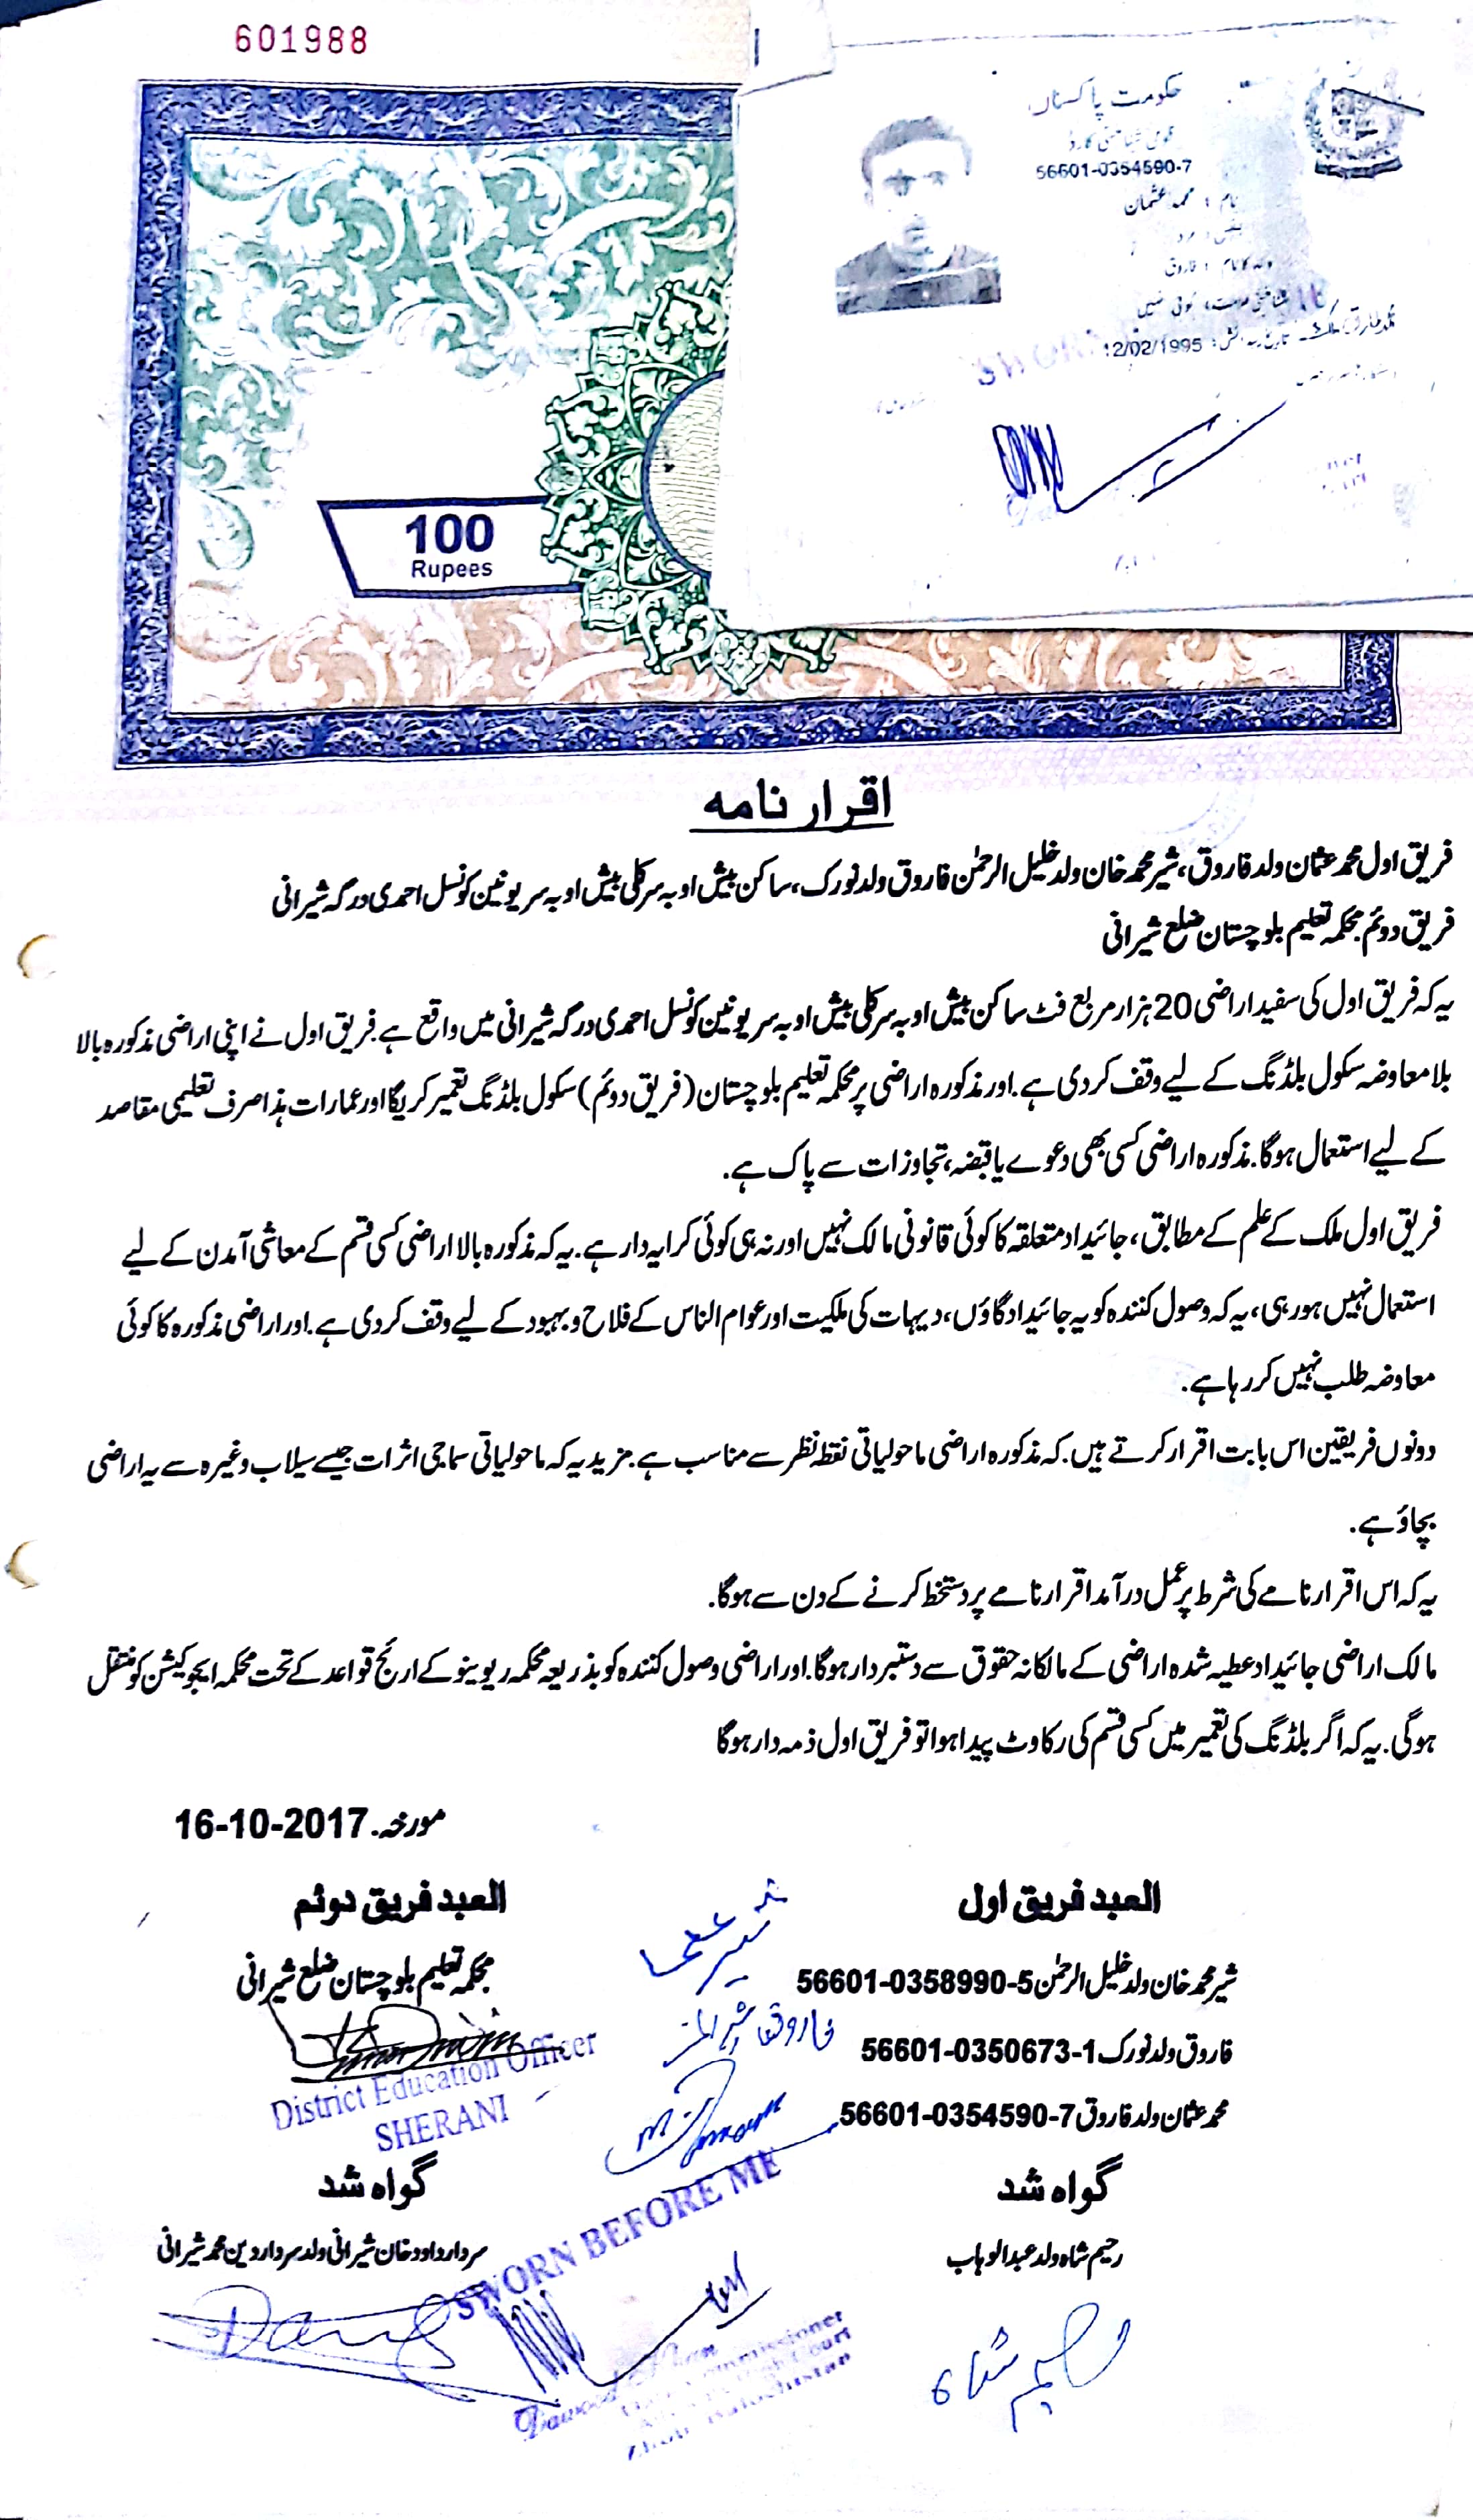 601988
حکومت پاکستان
قومی شناختی کارڈ
56601-0354590-7
نام : محمد عثمان
جنس : مرد
والد کا نام : فاروق
شناختی علامت : کوئی نہیں
تاریخ پیدائش : 12/02/1995
100
Rupees
اقرار نامه
فریق اول محمد عثمان ولد فاروق، شیر محمد خان ولد خلیل الرحمٰن فاروق ولد نورک، ساکن بیش اوبہ سر کلی بیش اوبہ سر یونین کونسل احمدی درگہ شیرانی
فریق دوئم محکمہ تعلیم بلوچستان ضلع شیرانی
یہ کہ فریق اول کی سفید اراضی 20 ہزار مربع فٹ ساکن بیش اوبہ سر کلی بیش اوبہ سر یونین کونسل احمدی درگہ شیرانی میں واقع ہے. فریق اول نے اپنی اراضی مذکورہ بالا
بلا معاوضہ سکول بلڈنگ کے لیے وقف کر دی ہے. اور مذکورہ اراضی پر محکمہ تعلیم بلوچستان (فریق دوئم) سکول بلڈنگ تعمیر کریگا اور عمارات ہذا صرف تعلیمی مقاصد
کے لیے استعمال ہوگا. مذکورہ اراضی کسی بھی دعوے یا قبضہ، تجاوزات سے پاک ہے.
فریق اول ملک کے علم کے مطابق، جائیداد متعلقہ کا کوئی قانونی مالک نہیں اور نہ ہی کوئی کرایہ دار ہے. یہ کہ مذکورہ بالا اراضی کسی قسم کے معاشی آمدن کے لیے
استعمال نہیں ہو رہی، یہ کہ وصول کنندہ کو یہ جائیداد گاؤں، دیہات کی ملکیت اور عوام الناس کے فلاح و بہبود کے لیے وقف کر دی ہے. اور اراضی مذکورہ کا کوئی
معاوضہ طلب نہیں کر رہا ہے.
دونوں فریقین اس بابت اقرار کرتے ہیں. کہ مذکورہ اراضی ماحولیاتی نقطہ نظر سے مناسب ہے. مزید یہ کہ ماحولیاتی سماجی اثرات جیسے سیلاب وغیرہ سے یہ اراضی
بچاؤ ہے.
یہ کہ اس اقرار نامے کی شرط پر عمل درآمد اقرار نامے پر دستخط کرنے کے دن سے ہوگا.
مالک اراضی جائیداد عطیہ شدہ اراضی کے مالکانہ حقوق سے دستبردار ہوگا. اور اراضی وصول کنندہ کو بذریعہ محکمہ ریوینو کے ارنج قواعد کے تحت محکمہ ایجوکیشن کو منتقل
ہوگی. یہ کہ اگر بلڈنگ کی تعمیر میں کسی قسم کی رکاوٹ پیدا ہوا تو فریق اول ذمہ دار ہوگا
مورخہ. 16-10-2017
العبد فریق اول
شیر محمد خان ولد خلیل الرحمٰن 56601-0358990-5
فاروق ولد نورک 56601-0350673-1
محمد عثمان ولد فاروق 56601-0354590-7
العبد فریق دوئم
محکمہ تعلیم بلوچستان ضلع شیرانی
District Education Officer
SHERANI
گواہ شد
رحیم شاہ ولد عبدالوہاب
گواہ شد
سردار داود خان شیرانی ولد سردار دین محمد شیرانی
SWORN BEFORE ME